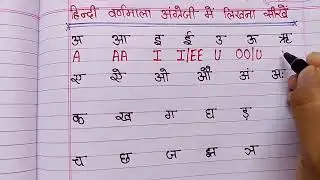 हिन्दी वर्णमाला अंग्रेजी में लिखना सीखें
अ आ इ ई उ ऊ ऋ
A AA I I/EE U OO/U
ए ऐ ओ औ अं अः
क ख ग घ ङ
च छ ज झ ञ